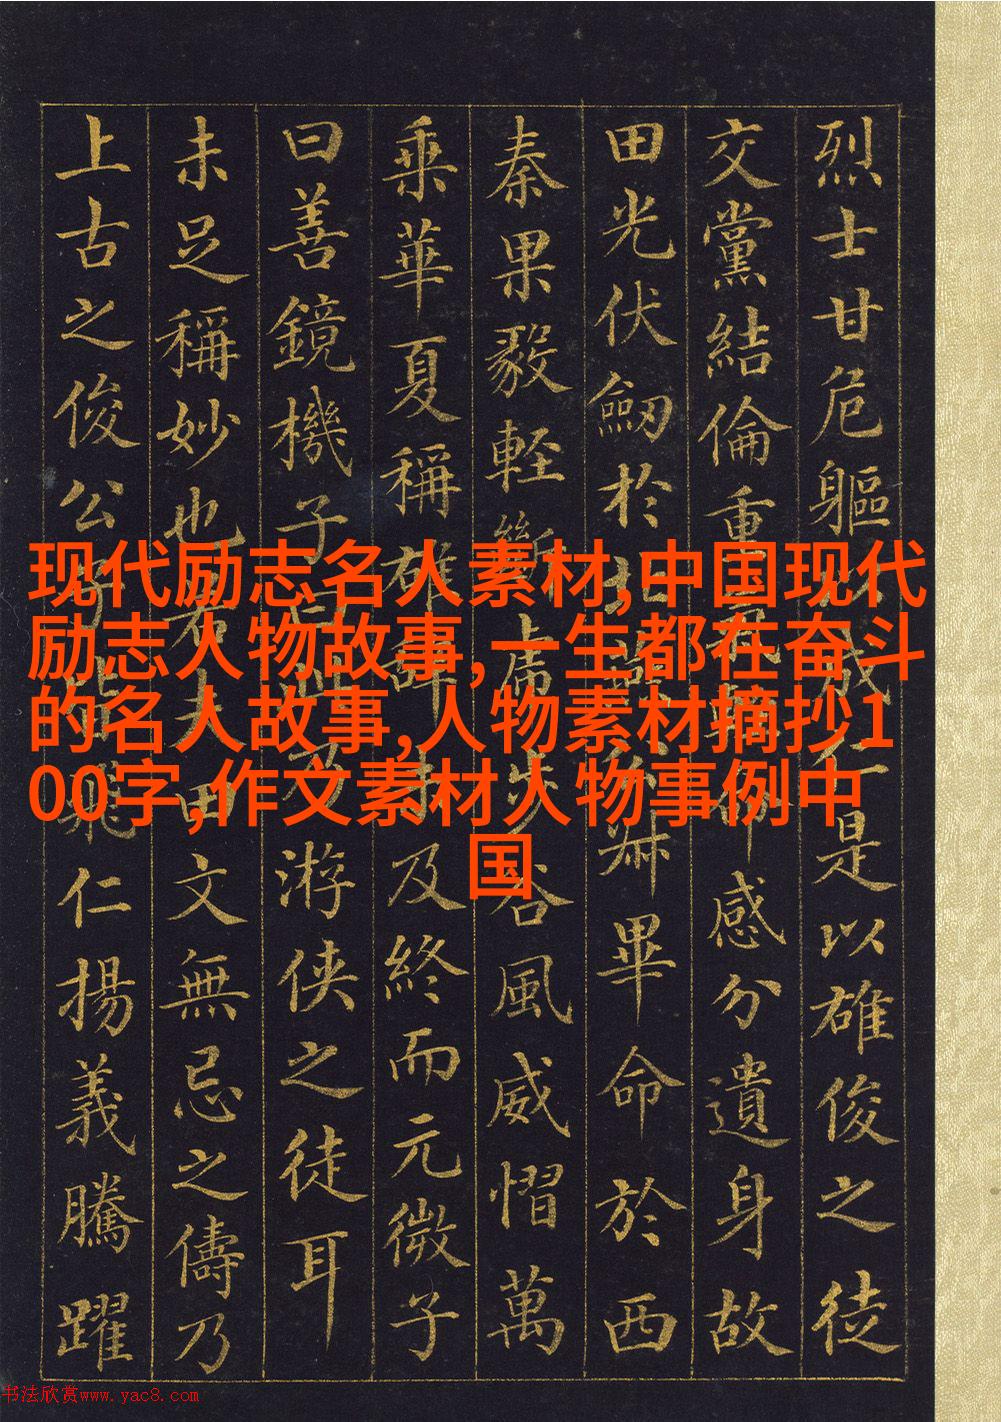 烈士甘危軀成行是以雄俊之徒
交黨結倫重命感分遺身故
田光伏劒於畢命於西
秦果毅輕斷虎步谷風威慴萬
乘華夏稱雄辭未及終而元微子
曰善鏡機子曰此乃游俠之徒耳
未足稱妙也若夫田文無忌之儔乃
上古之俊公子也皆飛仁揚義騰躍
现代励志名人素材,中国现代
励志人物故事,一生都在奋斗
的名人故事,人物素材摘抄1
00字,作文素材人物事例中
国
书法欣赏www.yac8.com